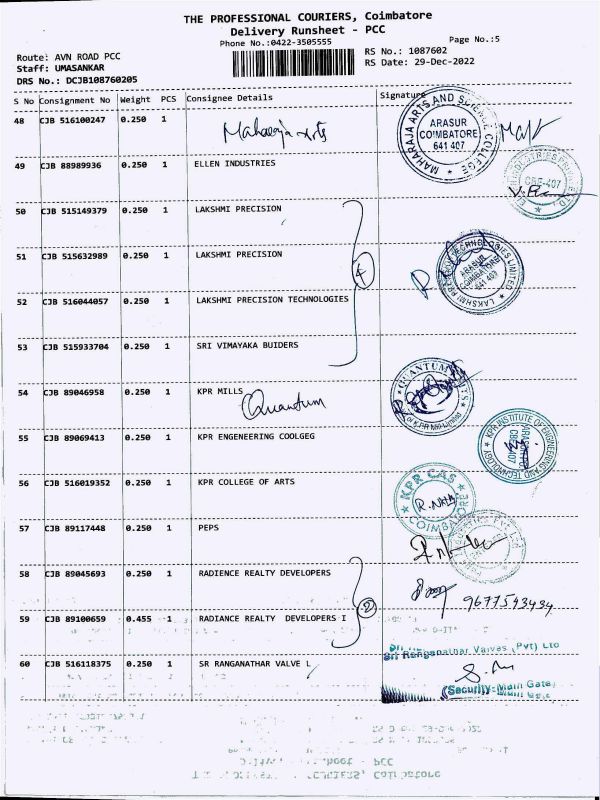 THE PROFESSIONAL COURIERS, Coimbatore
Delivery Runsheet - PCC
Phone No.:0422-3505555
Page No.:5
Route: AVN ROAD PCC
RS No.: 1087602
Staff: UMASANKAR
RS Date: 29-Dec-2022
DRS No.: DCJB108760205
S No Consignment No Weight PCS Consignee Details Signature
48 CJB 516100247 0.250 1 Maharaja Arts
MAHARAJA ARTS AND SCIENCE COLLEGE
ARASUR
COIMBATORE
641 407
49 CJB 88989936 0.250 1 ELLEN INDUSTRIES
50 CJB 515149379 0.250 1 LAKSHMI PRECISION
51 CJB 515632989 0.250 1 LAKSHMI PRECISION
4
LAKSHMI PRECISION TECHNOLOGIES LIMITED
ARASUR
COIMBATORE
641 407
52 CJB 516044057 0.250 1 LAKSHMI PRECISION TECHNOLOGIES
53 CJB 515933704 0.250 1 SRI VIMAYAKA BUIDERS
54 CJB 89046958 0.250 1 KPR MILLS
Quantum
55 CJB 89069413 0.250 1 KPR ENGENEERING COOLGEG
KPR INSTITUTE OF ENGINEERING AND TECHNOLOGY
56 CJB 516019352 0.250 1 KPR COLLEGE OF ARTS
KPR CAS
COIMBATORE
57 CJB 89117448 0.250 1 PEPS
58 CJB 89045693 0.250 1 RADIENCE REALTY DEVELOPERS
2
9677543434
59 CJB 89100659 0.455 1 RADIANCE REALTY DEVELOPERS I
60 CJB 516118375 0.250 1 SR RANGANATHAR VALVE L
Sri Ranganathar Valves (Pvt) Ltd
(Security-Main Gate)